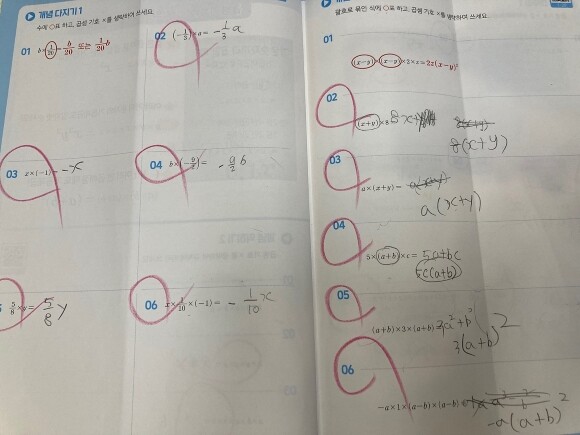 개념 다지기 1
수에 ○표 하고, 곱셈 기호 ×를 생략하여 쓰세요.
01 b×1/20=b/20 또는 1/20b
02 (-1/3)×a= -1/3 a
03 x×(-1)= -x
04 b×(-a/2)= -a/2 b
5/8×y= 5/8 y
06 x×1/10×(-1)= -1/10 x
괄호로 묶인 식에 ○표 하고, 곱셈 기호 ×를 생략하여 쓰세요.
01
(x-y)×(x-y)×2×z=2z(x-y)²
02
(x+y)×8
8(x+y)
03
a×(x+y)=
a(x+y)
04
5×(a+b)×c= 5a+bc
5c(a+b)
05
(a+b)×3×(a+b) 3a²+b²
3(a+b)²
06
-a×1×(a-b)×(a-b)
-a(a+b)²